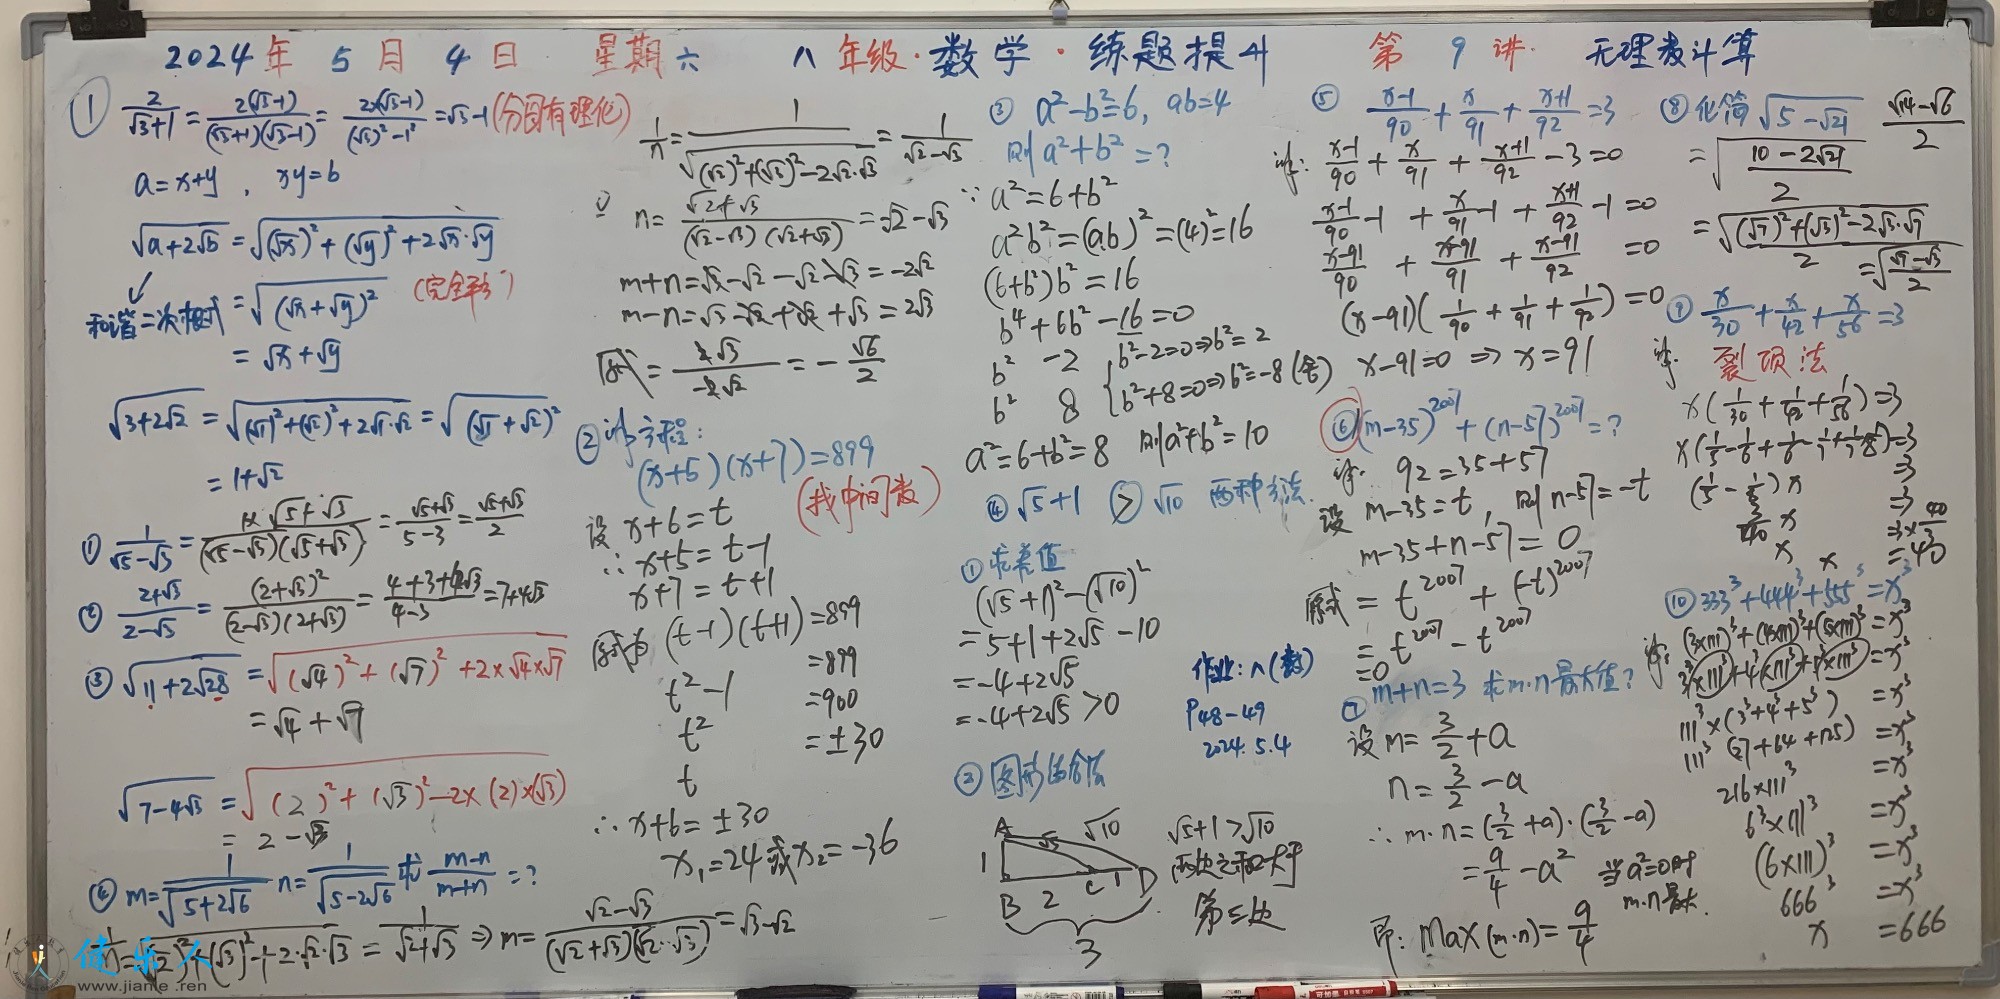 2024年 5月 4日 星期六 八年级·数学·练题提升 第 9 讲. 无理数计算
① 2/(√3+1) = 2(√3-1)/((√3+1)(√3-1)) = 2×(√3-1)/((√3)²-1²) = √3-1 (分母有理化)
a=x+y , xy=b
√(a+2√b) = √((√x)²+(√y)²+2√x·√y)
和谐二次根式 = √((√x+√y)²)
= √x+√y
√(3+2√2) = √((√1)²+(√2)²+2√1·√2) = √((√1+√2)²)
= 1+√2
① 1/(√5-√3) = 1×√5+√3/((√5-√3)(√5+√3)) = (√5+√3)/(5-3) = (√5+√3)/2
② (2+√3)/(2-√3) = (2+√3)²/((2-√3)(2+√3)) = (4+3+4√3)/(4-3) = 7+4√3
③ √(11+2√28) = √((√4)²+(√7)²+2×√4×√7)
= √4+√7
√(7-4√3) = √((2)²+(√3)²-2×(2)×(√3))
= 2-√3
④ m=1/√(5+2√6) n=1/√(5-2√6) 求 (m-n)/(m+n) = ?
= 1/(√2+√3) ⇒ m= (√2-√3)/((√2+√3)(√2-√3)) = √3-√2
1/√((√2)²+(√3)²-2√2·√3) = 1/(√2-√3)
n= (√2+√3)/((√2-√3)(√2+√3)) = -√2-√3
m+n=√3-√2-√2-√3=-2√2
m-n=√3-√2+√2+√3=2√3
原式= 2√3/-2√2 = -√6/2
② 解方程:
(x+5)(x+7)=899
(找中间数)
设 x+6=t
∴ x+5=t-1
x+7=t+1
原式为 (t-1)(t+1)=899
t²-1 =899
t² =900
t =±30
∴ x+6=±30
x₁=24 或 x₂=-36
③ a²-b²=6, ab=4
则 a²+b²=?
∵ a²=6+b²
a²b²=(ab)²=(4)²=16
(6+b²)b²=16
b⁴+6b²-16=0
b² -2 { b²-2=0⇒b²=2
b² 8 b²+8=0⇒b²=-8 (舍)
a²=6+b²=8 则a²+b²=10
④ √5+1 > √10 两种方法.
① 求差值
(√5+1)²-(√10)²
=5+1+2√5-10
=-4+2√5
=-4+2√5>0
② 图形结合法
A √5 √10
1
B 2 C 1 D
3
√5+1>√10
两边之和大于
第三边
作业:八(数)
P48-49
2024.5.4
⑤ (x-1)/90 + x/91 + (x+1)/92 =3
解: (x-1)/90 + x/91 + (x+1)/92 -3=0
(x-1)/90 -1 + x/91 -1 + (x+1)/92 -1=0
(x-91)/90 + (x-91)/91 + (x-91)/92 =0
(x-91)(1/90+1/91+1/92)=0
x-91=0 ⇒ x=91
⑥ (m-35)²⁰⁰⁷+(n-57)²⁰⁰⁷=?
解: 92=35+57
设 m-35=t, 则 n-57=-t
m-35+n-57=0
原式=t²⁰⁰⁷+(-t)²⁰⁰⁷
=t²⁰⁰⁷-t²⁰⁰⁷
=0
⑦ m+n=3 求m·n最大值?
设 m=3/2+a
n=3/2-a
∴ m·n=(3/2+a)·(3/2-a)
=9/4-a² 当a²=0时
m·n最大.
即: Max(m·n)=9/4
⑧ 化简 √(5-√21) (√14-√6)/2
=√((10-2√21)/2)
=√(((√7)²+(√3)²-2√3·√7)/2)
⑨ x/30+x/42+x/56=3
解: 裂项法
x(1/30+1/42+1/56)=3
x(1/5-1/6+1/6-1/7+1/7-1/8)=3
(1/5-1/8)x =3
3/40 x =3
x =3×40/3
x =40
⑩ 333³+444³+555³=x³
解: (3×111)³+(4×111)³+(5×111)³=x³
3³×111³+4³×111³+5³×111³=x³
111³×(3³+4³+5³) =x³
111³(27+64+125) =x³
216×111³ =x³
6³×111³ =x³
(6×111)³ =x³
666³ =x³
x =666
健乐人
www.jianle.ren